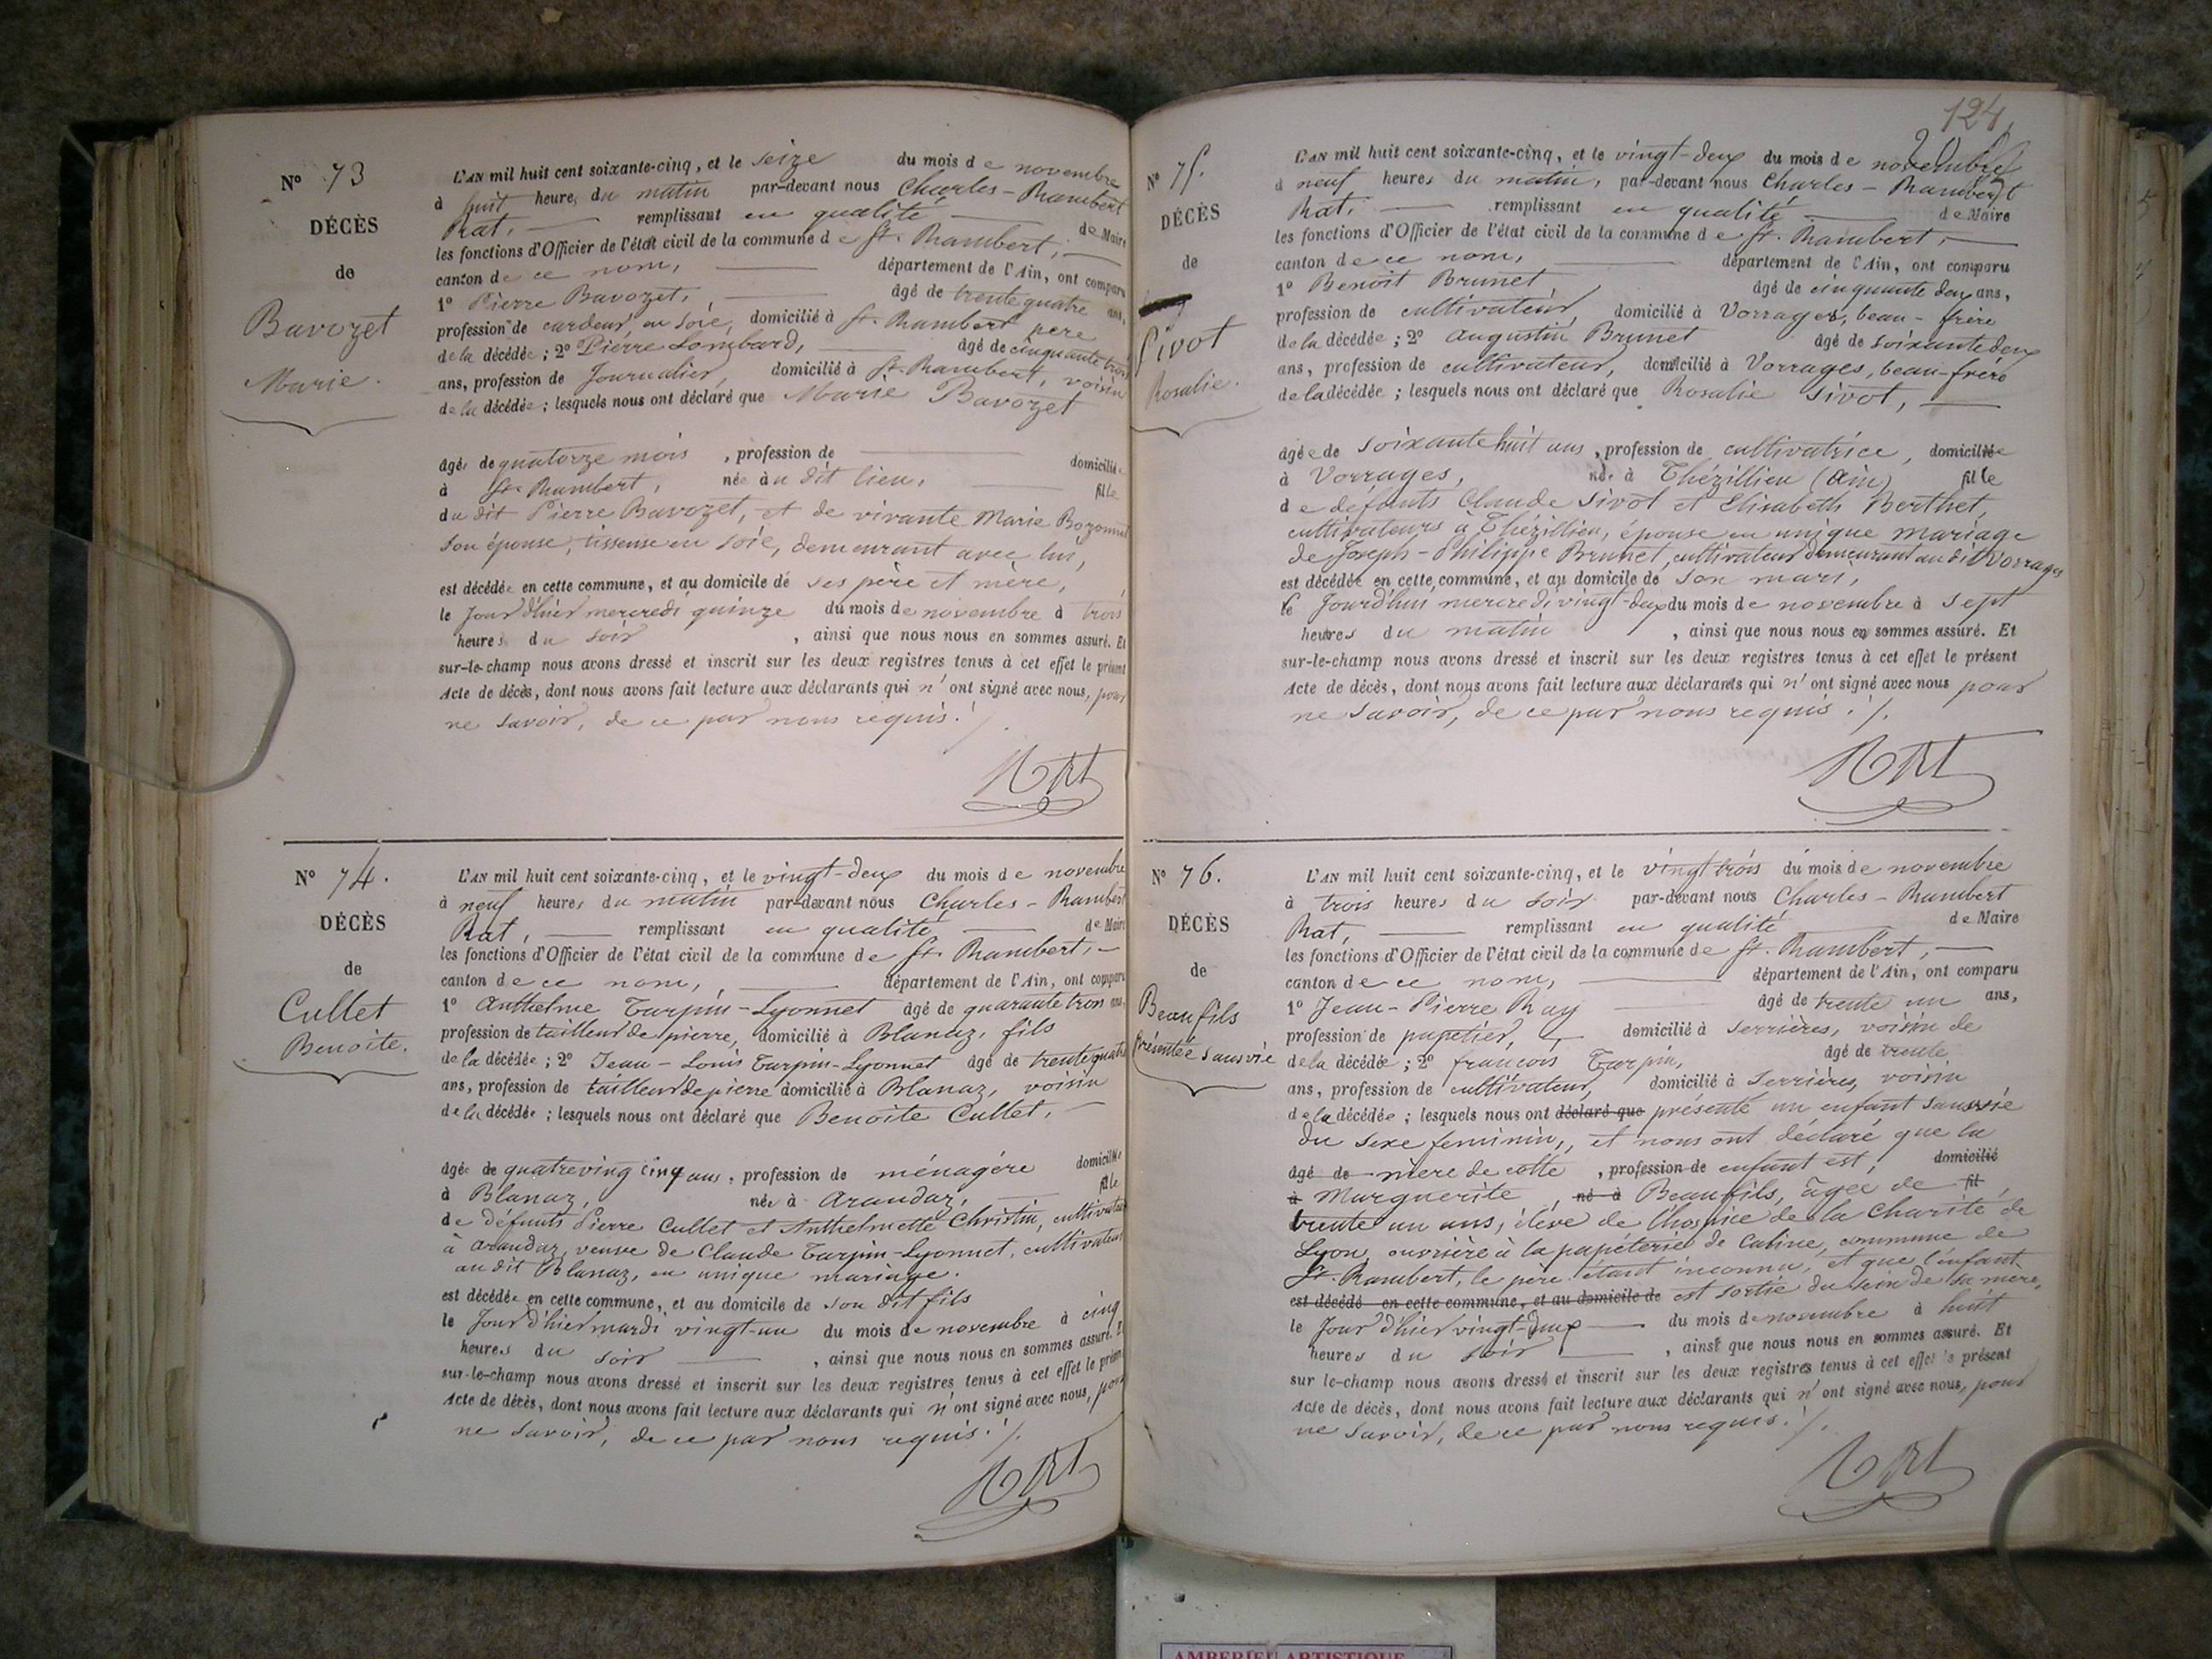 N° 73
DÉCÈS
de
Bavozet
Marie.
L'AN mil huit cent soixante-cinq, et le seize du mois de novembre
à huit heures du matin par-devant nous Charles-Rambert
Rat, remplissant en qualité de Maire
les fonctions d'Officier de l'état civil de la commune de St. Rambert,
canton de ce nom, département de l'Ain, ont comparu
1° Pierre Bavozet, âgé de trente quatre ans,
profession de cardeur en soie, domicilié à St. Rambert père
de la décédée ; 2° Pierre Lombard, âgé de cinquante trois
ans, profession de Journalier, domicilié à St. Rambert, voisin
de la décédée ; lesquels nous ont déclaré que Marie Bavozet
âgée de quatorze mois, profession de domiciliée
à St. Rambert, née au dit lieu, fille
du dit Pierre Bavozet, et de vivante Marie
son épouse, tisseuse en soie, demeurant avec lui,
est décédée en cette commune, et au domicile de ses père et mère,
le Jour d'hier mercredi quinze du mois de novembre à trois
heures du soir, ainsi que nous nous en sommes assuré. Et
sur-le-champ nous avons dressé et inscrit sur les deux registres tenus à cet effet le présent
Acte de décès, dont nous avons fait lecture aux déclarants qui n'ont signé avec nous, pour
ne savoir, de ce par nous requis. /.
N° 74.
DÉCÈS
de
Cullet
Benoite.
L'AN mil huit cent soixante-cinq, et le vingt-deux du mois de novembre
à neuf heures du matin par-devant nous Charles-Rambert
Rat, remplissant en qualité de Maire
les fonctions d'Officier de l'état civil de la commune de St. Rambert,
canton de ce nom, département de l'Ain, ont comparu
1° Anthelme Turpin-Lyonnet âgé de quarante trois ans,
profession de tailleur de pierre, domicilié à Blanaz, fils
de la décédée ; 2° Jean-Louis Turpin-Lyonnet âgé de trente quatre
ans, profession de tailleur de pierre domicilié à Blanaz, voisin
de la décédée ; lesquels nous ont déclaré que Benoite Cullet,
âgée de quatreving cinq ans, profession de ménagère domiciliée
à Blanaz, née à Arandaz, fille
de défunts Pierre Cullet et Anthelmette Christin, cultivateurs
à Arandaz, veuve de Claude Turpin-Lyonnet, cultivateur
au dit Blanaz, en unique mariage.
est décédée en cette commune, et au domicile de son dit fils
le Jour d'hier mardi vingt-un du mois de novembre à cinq
heures du soir, ainsi que nous nous en sommes assuré. Et
sur-le-champ nous avons dressé et inscrit sur les deux registres tenus à cet effet le présent
Acte de décès, dont nous avons fait lecture aux déclarants qui n'ont signé avec nous, pour
ne savoir, de ce par nous requis. /.
124
N° 75.
DÉCÈS
de
Sivot
Rosalie.
L'AN mil huit cent soixante-cinq, et le vingt-deux du mois de novembre
à neuf heures du matin, par-devant nous Charles-Rambert
Rat, remplissant en qualité de Maire
les fonctions d'Officier de l'état civil de la commune de St. Rambert,
canton de ce nom, département de l'Ain, ont comparu
1° Benoit Brunet, âgé de cinquante deux ans,
profession de cultivateur, domicilié à Vorrages, beau-frère
de la décédée ; 2° Augustin Brunet âgé de soixante deux
ans, profession de cultivateur, domicilié à Vorrages, beau-frère
de la décédée ; lesquels nous ont déclaré que Rosalie Sivot,
âgée de soixante huit ans, profession de cultivatrice, domiciliée
à Vorrages, née à Thézillieu (Ain) fille
de défunts Claude Sivot et Elisabeth Berthet,
cultivateurs à Thézillieu, épouse en unique mariage
de Joseph-Philippe Brunet, cultivateur demeurant au dit Vorrages
est décédée en cette commune, et au domicile de son mari,
le Jourd'hui mercredi vingt-deux du mois de novembre à sept
heures du matin, ainsi que nous nous en sommes assuré. Et
sur-le-champ nous avons dressé et inscrit sur les deux registres tenus à cet effet le présent
Acte de décès, dont nous avons fait lecture aux déclarants qui n'ont signé avec nous pour
ne savoir, de ce par nous requis. /.
N° 76.
DÉCÈS
de
Beaufils
présentée sans vie
L'AN mil huit cent soixante-cinq, et le vingt trois du mois de novembre
à trois heures du soir par-devant nous Charles-Rambert
Rat, remplissant en qualité de Maire
les fonctions d'Officier de l'état civil de la commune de St. Rambert,
canton de ce nom, département de l'Ain, ont comparu
1° Jean-Pierre Ray âgé de trente un ans,
profession de papetier, domicilié à Serrières, voisin de
de la décédée ; 2° françois Turpin, âgé de trente
ans, profession de cultivateur, domicilié à Serrières, voisin
de la décédée ; lesquels nous ont déclaré que présenté un enfant sans vie
du sexe feminin, et nous ont déclaré que la
âgé de mère de cette, profession de enfant est, domicilié
à Marguerite, né à Beaufils, âgée de fil
trente un ans, élève de l'hospice de la Charité de
Lyon, ouvrière à la papéterie de Catine, commune de
St. Rambert, le père étant inconnu, et que l'enfant
est décédé en cette commune, et au domicile de est sortie du sein de sa mère,
le Jour d'hier vingt-deux du mois de novembre à huit
heures du soir, ainsi que nous nous en sommes assuré. Et
sur le-champ nous avons dressé et inscrit sur les deux registres tenus à cet effet le présent
Acte de décès, dont nous avons fait lecture aux déclarants qui n'ont signé avec nous, pour
ne savoir, de ce par nous requis. /.
AMBERIEU ARTISTIQUE